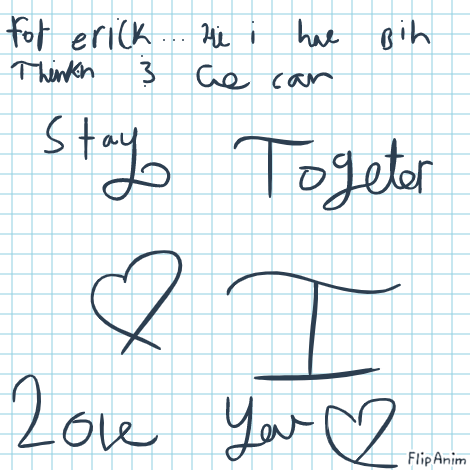 For erick... Hi i have Bin
Thinkin 3 we can
Stay Togeter
I
Love You
FlipAnim